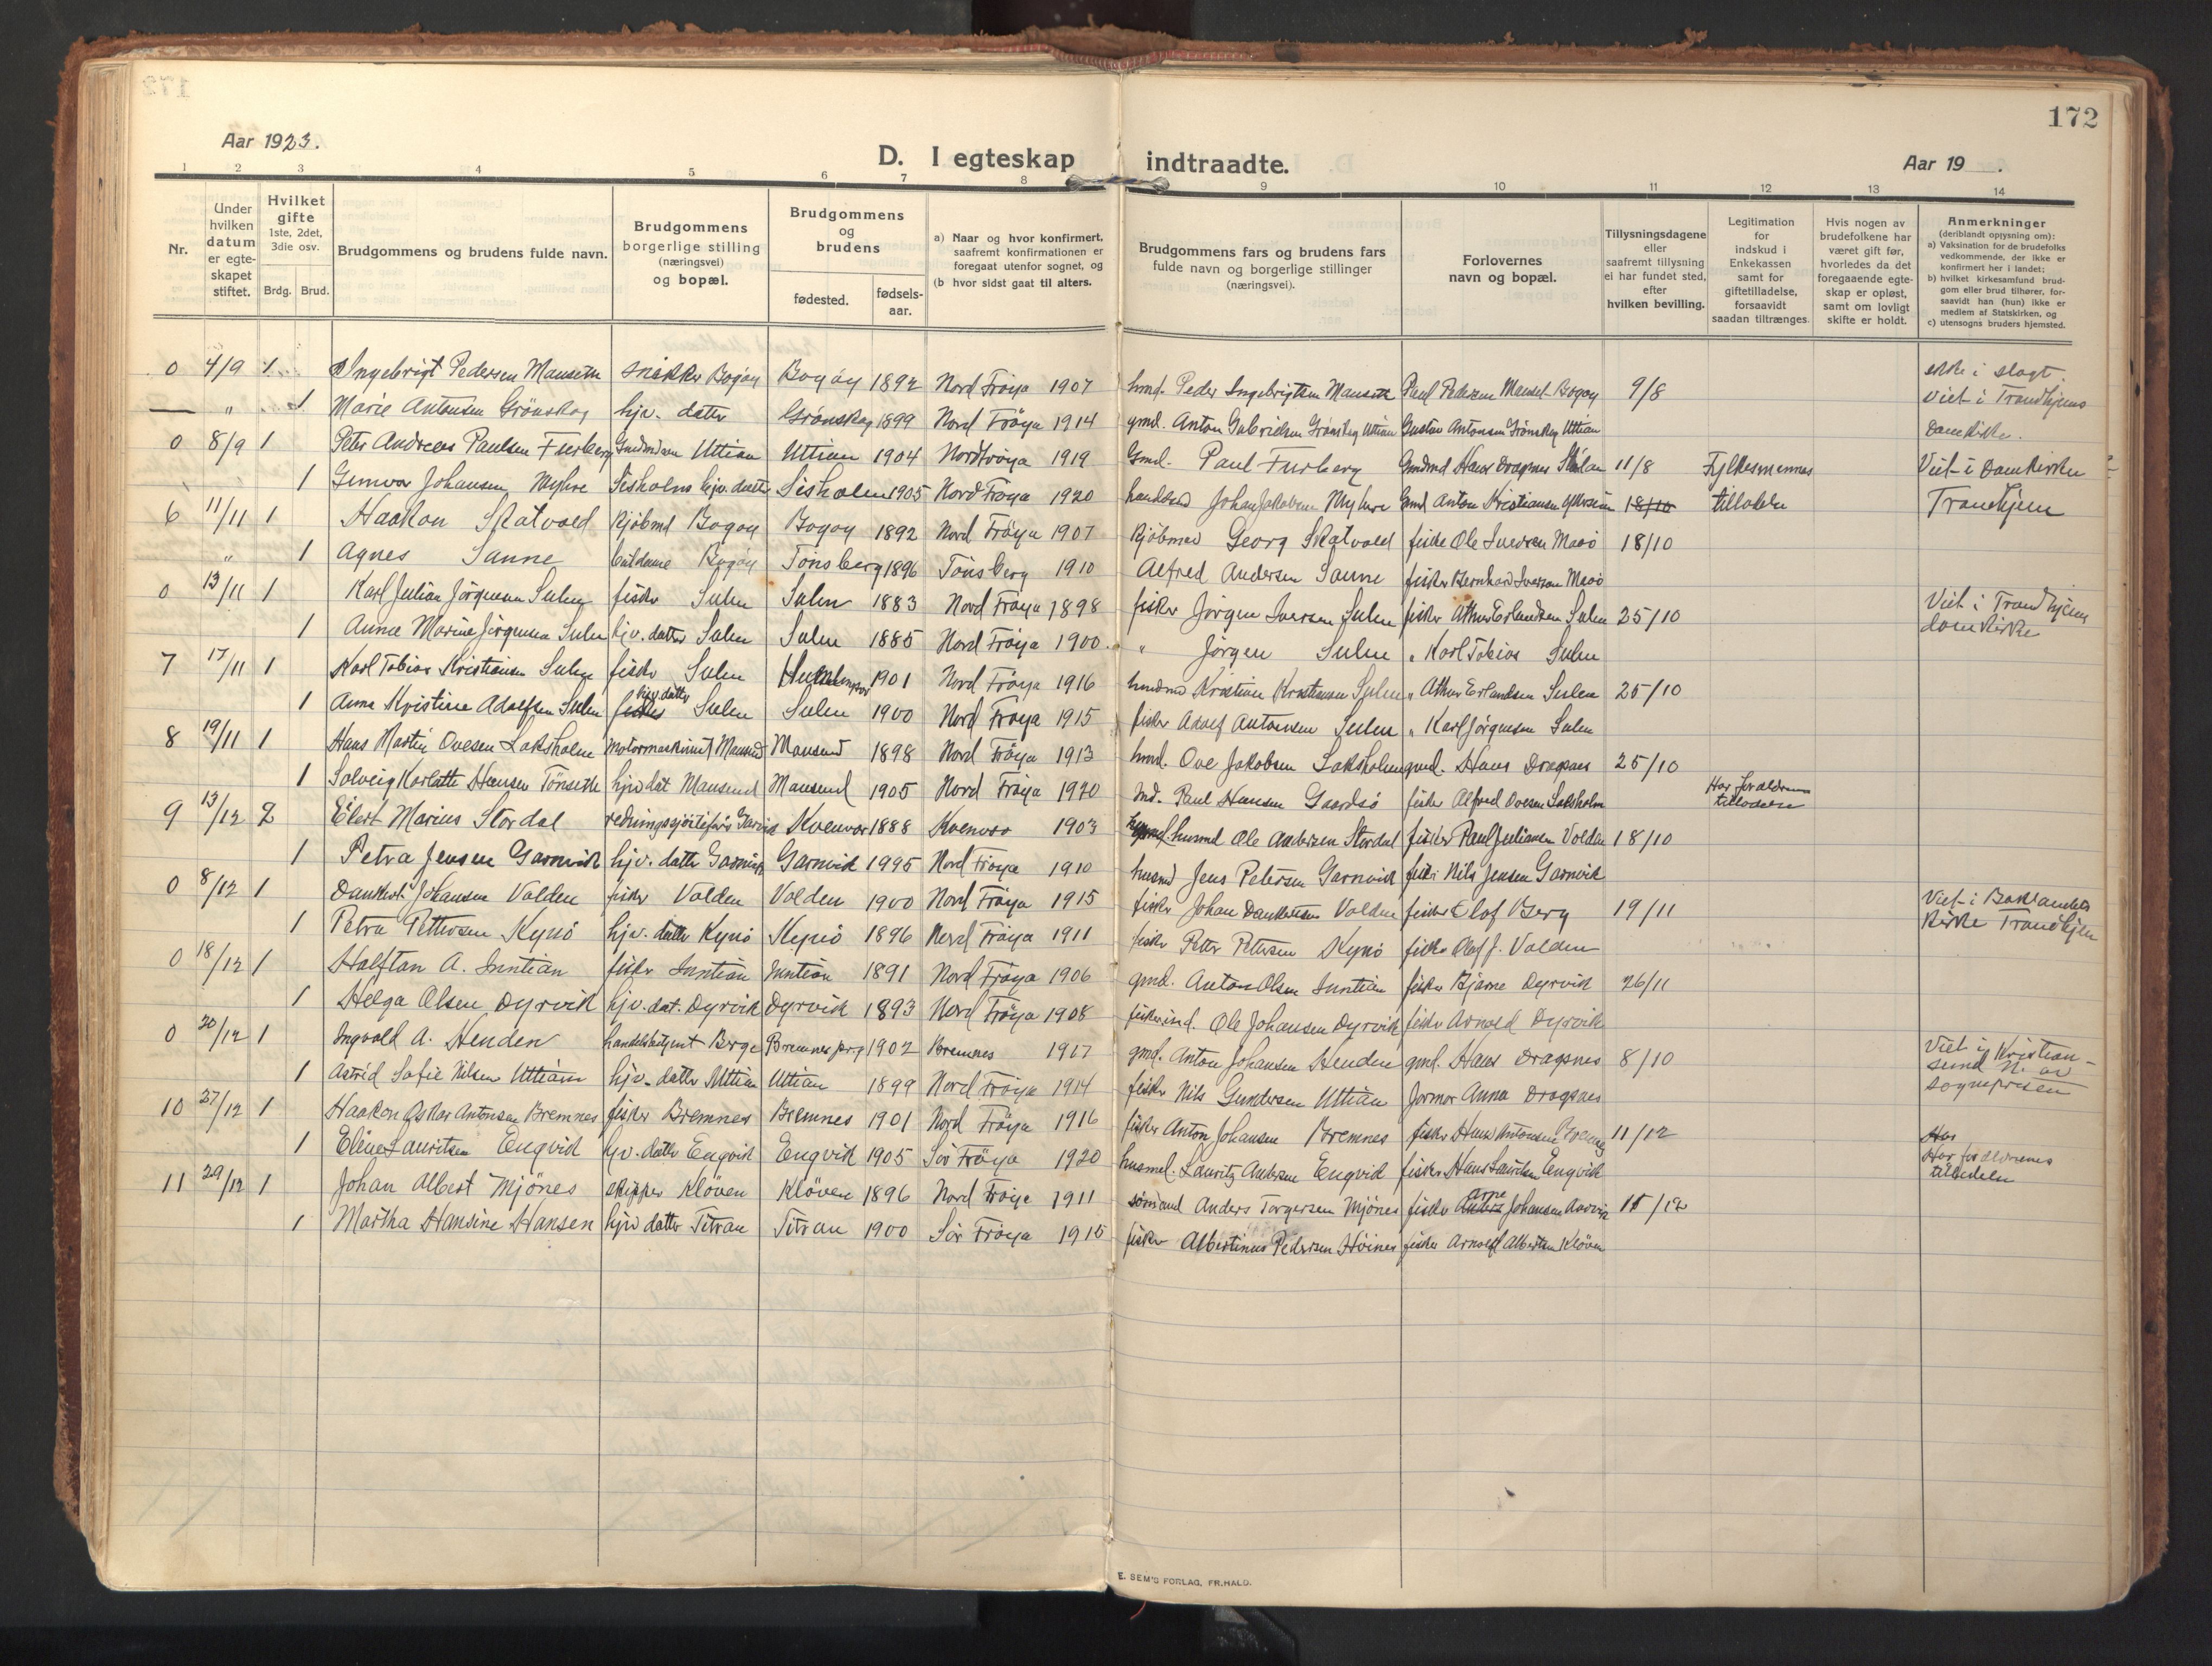 172
Aar 1923.
D. I egteskap indtraadte.
Aar 19 .
1 2 3 4 5 6 7 8 9 10 11 12 13 14
Nr.
Under hvilken datum er egteskapet stiftet.
Hvilket gifte 1ste, 2det, 3die osv.
Brdg. Brud.
Brudgommens og brudens fulde navn.
Brudgommens borgerlige stilling (næringsvei) og bopæl.
Brudgommens og brudens
fødested. fødsels-aar.
a) Naar og hvor konfirmert, saafremt konfirmationen er foregaat utenfor sognet, og (b hvor sidst gaat til alters.
Brudgommens fars og brudens fars fulde navn og borgerlige stillinger (næringsvei).
Forlovernes navn og bopæl.
Tillysningsdagene eller saafremt tillysning ei har fundet sted, efter hvilken bevilling.
Legitimation for indskud i Enkekassen samt for giftetilladelse, forsaavidt saadan tiltrænges.
Hvis nogen av brudefolkene har været gift før, hvorledes da det foregaaende egteskap er opløst, samt om lovligt skifte er holdt.
Anmerkninger (deriblandt opysning om): a) Vaksination for de brudefolks vedkommende, der ikke er konfirmert her i landet; b) hvilket kirkesamfund brudgom eller brud tilhører, forsaavidt han (hun) ikke er medlem af Statskirken, og c) utensogns bruders hjemsted.
0 4/9 1 Ingebrigt Pedersen Mauseth snekker Bogøy Bogøy 1892 Nord Frøya 1907 hmd. Peder Ingebrigtsen Mauseth Paul Pedersen Mauset Bogøy 9/8 ikke i slegt.
" 1 Marie Antonsen Grönskag hjv. datter Grönskag 1899 Nord Fröya 1914 gmd. Anton Gabrielsen Grönskag Uttian Gustav Antonsen Grönskag Uttian Viet i Trondhjems Domkirke.
0 8/9 1 Peter Andreas Paulsen Furberg Uttian Uttian 1904 Nordfröya 1919 Gmd. Paul Furberg Gmdmd Hans Dragsnes 11/8 Fylkesmennes Viet i Domkirken
1 Gunvor Johansen Myhre Sisholm hjv. datter Sisholm 1905 Nord Fröya 1920 Johan Jakobsen Myhre Gmd Anton Kristiansen 18/10 tilladelse Trondhjem
6 11/11 1 Haakon Skatvold Kjöbmd Bogøy Bogøy 1892 Nord Fröya 1907 Kjöbmand Georg Skatvold fisker Ole Iversen Maaö 18/10
" 1 Agnes Sanne Bogøy Tönsberg 1896 Tönsberg 1910 Alfred Andersen Sanne fisker Bernhard Iversen Maaö
0 13/11 1 Karl Julian Jörgensen Sulen fisker Sulen Sulen 1883 Nord Fröya 1898 fisker Jörgen Iversen Sulen fisker Athur Erlandsen Sulen 25/10 Viet i Trondhjems domkirke
1 Anna Marine Jörgensen Sulen hjv. datter Sulen Sulen 1885 Nord Fröya 1900. " Jörgen Sulen " Karl Tobias Sulen
7 17/11 1 Karl Tobias Kristiansen Sulen fisker Sulen 1901 Nord Fröya 1916 husmd Kristian Kristiansen Sulen " Athur Erlandsen Sulen 25/10
1 Anna Kristine Adolfsen Sulen hjv. datter Sulen Sulen 1900 Nord Fröya 1915 fisker Adolf Antonsen Sulen " Karl Jörgensen Sulen
8 19/11 1 Hans Martin Ovesen Laksholm motormaskinist Mausund Mausund 1898 Nord Fröya 1913 hmd. Ove Jakobsen Laksholm gmd. Hans Dragsnes 25/10
1 Solveig Karlotte Hansen Tönseth hjv dat Mausund Mausund 1905 Nord Fröya 1920 md. Paul Hansen Gaardsö fisker Alfred Ovesen Laksholm Har foraldrenes tilladelse
9 13/12 2 Eilert Marius Stordal redningsskjöitefører Garnvik Kvenvær 1888 Kvenvær 1903 husmd Ole Andersen Stordal fisker Paul Julianen Volden 18/10
1 Petra Jensen Garnvik hjv. datter Garnvik Garnvik 1995 Nord Fröya 1910 husmd Jens Petersen Garnvik fisker Nils Jensen Garnvik
0 8/12 1 Dankert Johansen Valden fisker Valden Valden 1900 Nord Fröya 1915 fisker Johan Dankertsen Valden fisker Olof Berg 19/11 Viet i Baklandets Kirke Trondhjem
1 Petra Pettersen Kynö hjv. datter Kynö Kynö 1896 Nord Fröya 1911 fisker Petter Petersen Kynö fisker Olaf J. Valden
0 18/12 1 Halftan A. Inntian fisker Inntian Inntian 1891 Nord Fröya 1906 gmd. Anton Olsen Inntian fisker Bjarne Dyrvik 26/11
1 Helga Olsen Dyrvik hjv. dat. Dyrvik Dyrvik 1893 Nord Fröya 1908 fisker ind. Ole Johansen Dyrvik fisker Arnold Dyrvik
0 20/12 1 Ingvald A. Henden handelsbetjent Berge Bremnes prg 1902 Bremnes 1917 gmd. Anton Johansen Henden gmd. Hans Dragsnes 8/10 Viet i Kristiansund N. av sognepræsten
1 Astrid Sofie Nilsen Uttian hjv. datter Uttian Uttian 1899 Nord Fröya 1914 fisker Nils Gundersen Uttian Jormor Anna Dragsnes
10 27/12 1 Haakon Oskar Antonsen Bremnes fisker Bremnes Bremnes 1901 Nord Fröya 1916 fisker Anton Johansen Bremnes fisker Hans Antonsen 11/12 Har
1 Eline Lauritsen Engvik hjv. datter Engvik Engvik 1905 Sör Fröya 1920 husmd. Lauritz Andersen Engvik fisker Hans Lauritsen Engvik Har foraldrenes tilladelse
11 29/12 1 Johan Albert Mjönes skipper Klöven Klöven 1896 Nord Fröya 1911 sömand Anders Torgersen Mjönes fisker Arne Johansen Aarvik 11/12
1 Martha Hansine Hansen hjv datter Titran Titran 1900 Sör Fröya 1915 fisker Albertinus Pedersen Höines fisker Arnold Albertsen Klöven
E. SEM'S FORLAG, FR.HALD.